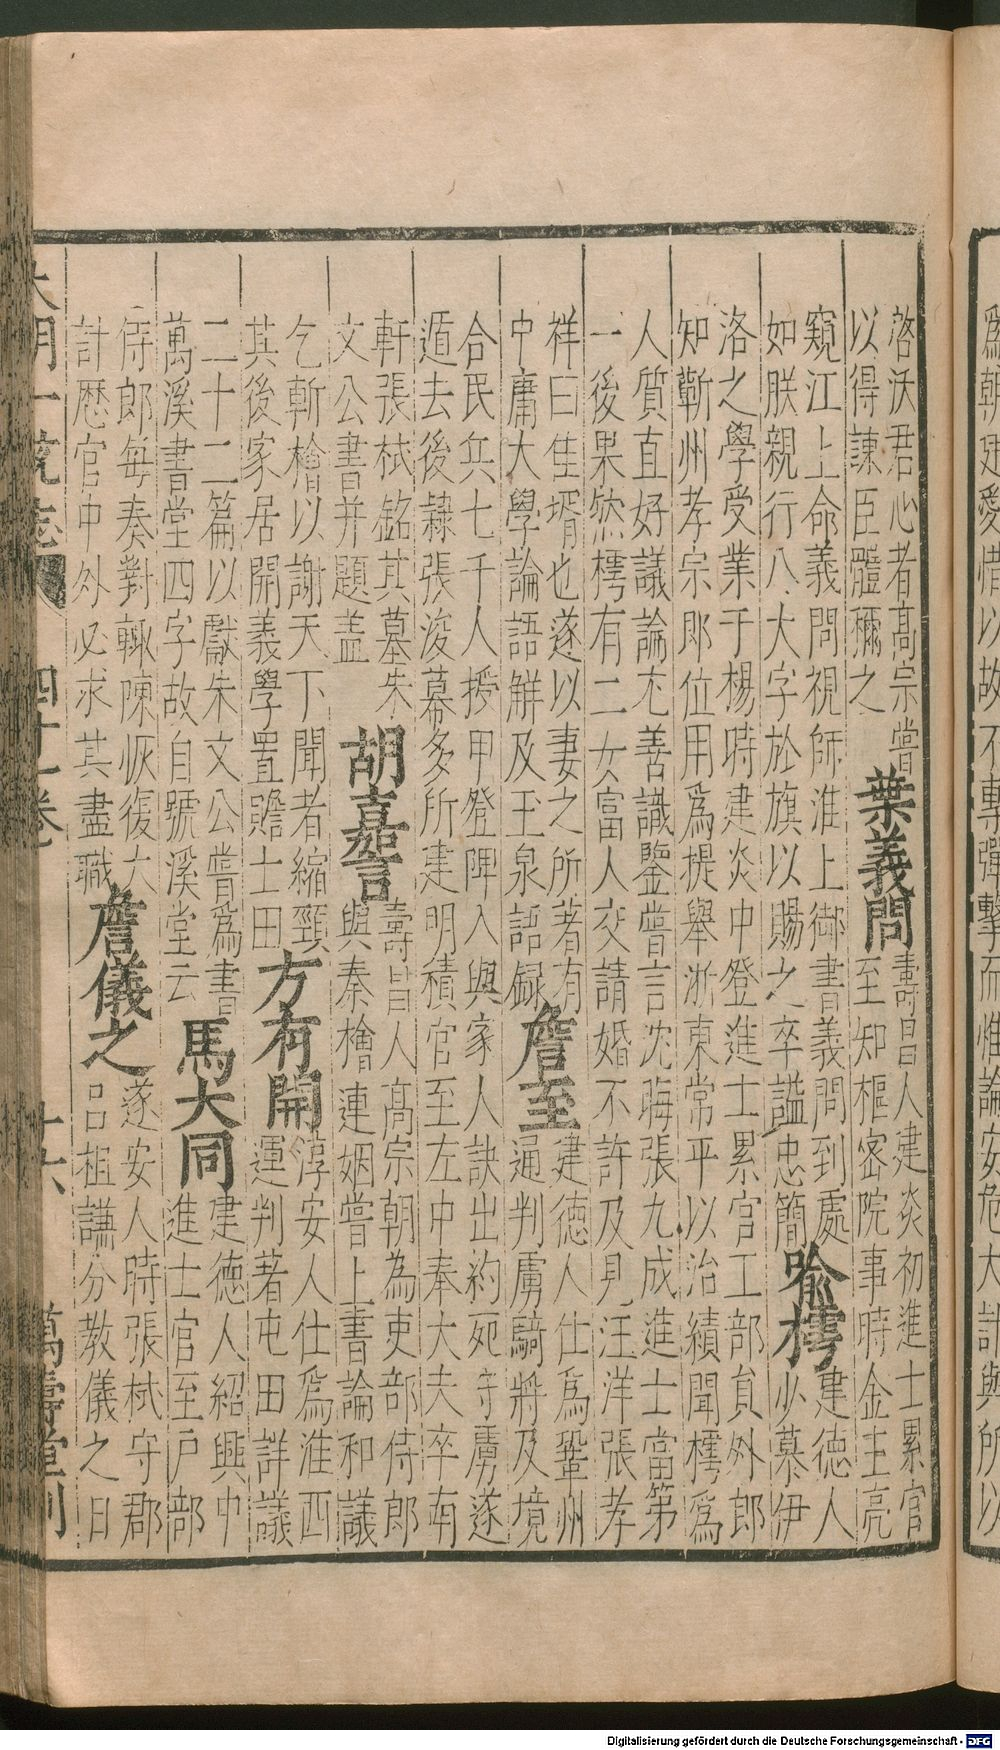 為朝廷愛惜以故不專彈擊而惟論安危大計與所以
啓沃君心者髙宗嘗
以得諫臣體稱之
葉義問
壽昌人建炎初進士累官
至知樞密院事時金主亮
窺江上命義問視師淮上御書義問到處
如朕親行八大字於旗以賜之卒謚忠簡
喻樗
建德人
少慕伊
洛之學受業于楊時建炎中登進士累官工部員外郎
知蘄州孝宗即位用爲提舉浙東常平以治績聞樗爲
人質直好議論尤善識鑒嘗言沈晦張九成進士當第
一後果然樗有二女富人交請婚不許及見汪洋張孝
祥曰佳壻也遂以妻之所著有
中庸大學論語解及玉泉語録
詹至
建德人仕爲鞏州
通判虜騎將及境
合民兵七千人授甲登陴入與家人訣出約死守虜遂
遁去後隷張浚幕多所建明積官至左中奉大夫卒南
軒張栻銘其墓朱
文公書并題盖
胡嘉言
壽昌人髙宗朝為吏部侍郎
與秦檜連姻嘗上書論和議
乞斬檜以謝天下聞者縮頸
其後家居開義學置贍士田
方有開
淳安人仕爲淮西
運判著屯田詳議
二十二篇以獻朱文公嘗爲書
萬溪書堂四字故自號溪堂云
馬大同
建德人紹興中
進士官至戸部
侍郎每奏對輒陳恢復大
計歴官中外必求其盡職
詹儀之
遂安人時張栻守郡
吕祖謙分教儀之日
大明一統志 四十一卷 十六 萬壽堂刊
Digitalisierung gefördert durch die Deutsche Forschungsgemeinschaft - DFG